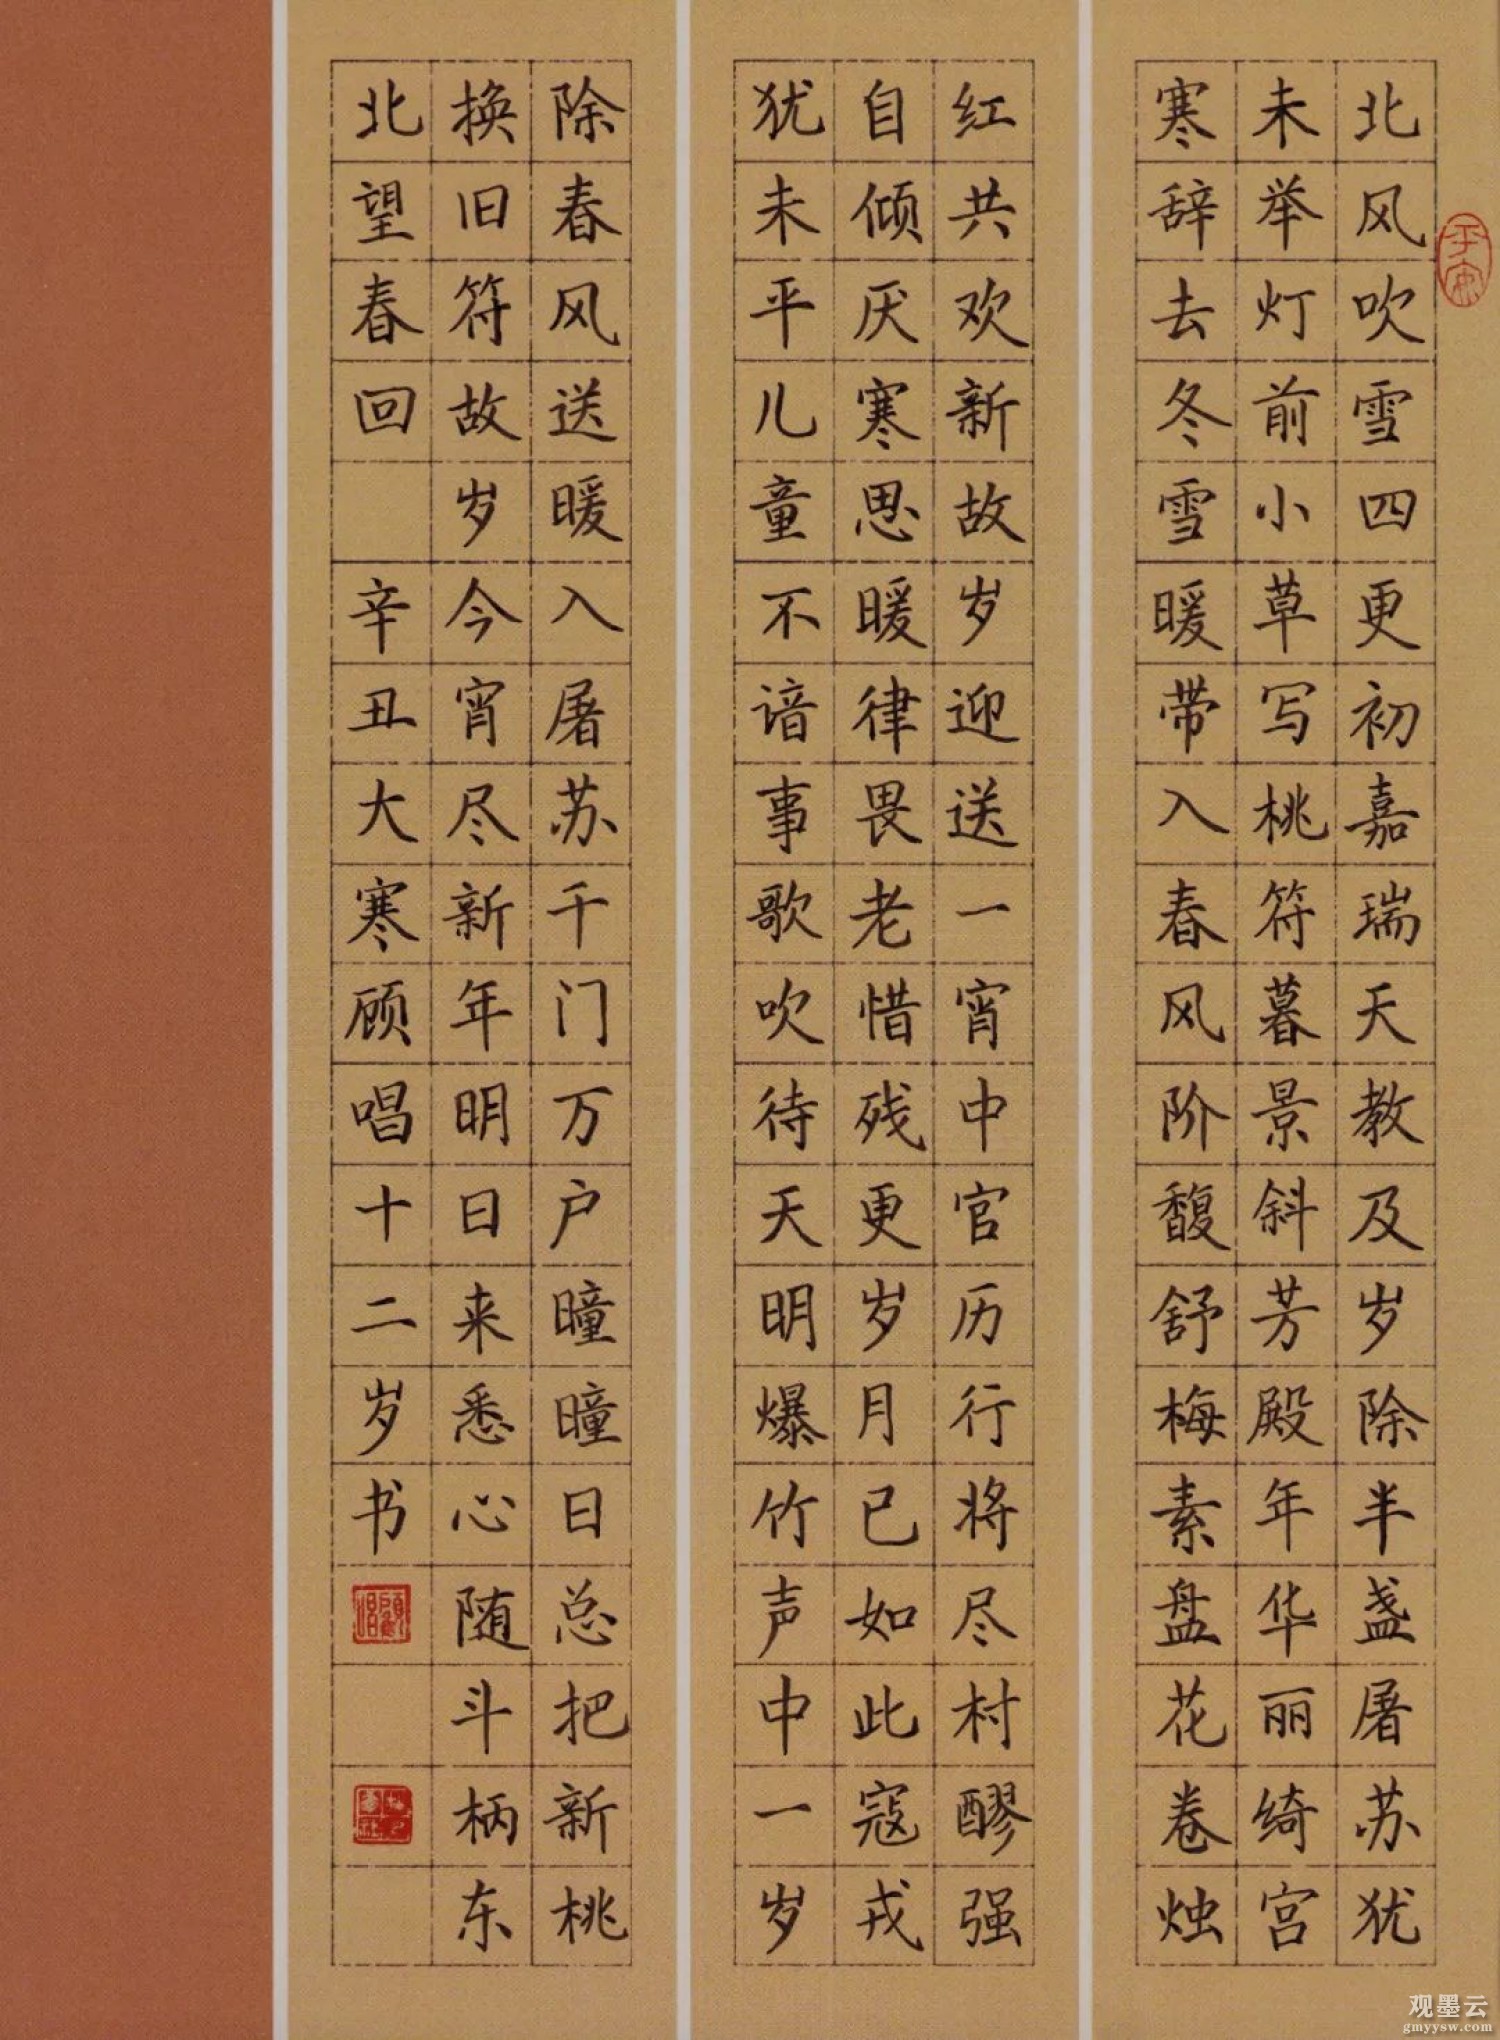 北风吹雪四更初嘉瑞天教及岁除半盏屠苏犹
未举灯前小草写桃符暮景斜芳殿年华丽绮宫
寒辞去冬雪暖带入春风阶馥舒梅素盘花卷烛
红共欢新故岁迎送一宵中官历行将尽村醪强
自倾厌寒思暖律畏老惜残更岁月已如此寇戎
犹未平儿童不谙事歌吹待天明爆竹声中一岁
除春风送暖入屠苏千门万户曈曈日总把新桃
换旧符故岁今宵尽新年明日来悉心随斗柄东
北望春回 辛丑大寒顾唱十二岁书
平安
观墨云
gmyysw.com